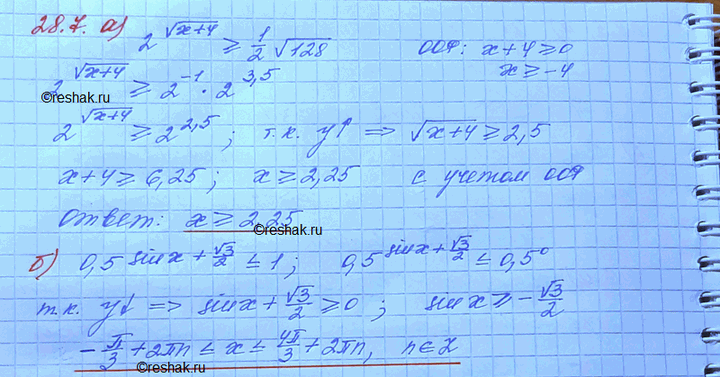 28.7. а) 2^√(x+4) ⩾ 1/2 √128   ООФ: x+4 ⩾ 0
2^√(x+4) ⩾ 2^(-1) · 2^(3,5)   x ⩾ -4
©reshak.ru
2^√(x+4) ⩾ 2^(2,5) ; т.к. y↑ ⟹ √(x+4) ⩾ 2,5
x+4 ⩾ 6,25 ; x ⩾ 2,25 с учетом ООФ
ответ: x ⩾ 2,25
©reshak.ru
б) 0,5^(sin x + √3/2) ⩽ 1 ; 0,5^(sin x + √3/2) ⩽ 0,5^0
т.к. y↓ ⟹ sin x + √3/2 ⩾ 0 ; sin x ⩾ -√3/2
-π/3 + 2πn ⩽ x ⩽ 4π/3 + 2πn, n∈Z
©reshak.ru